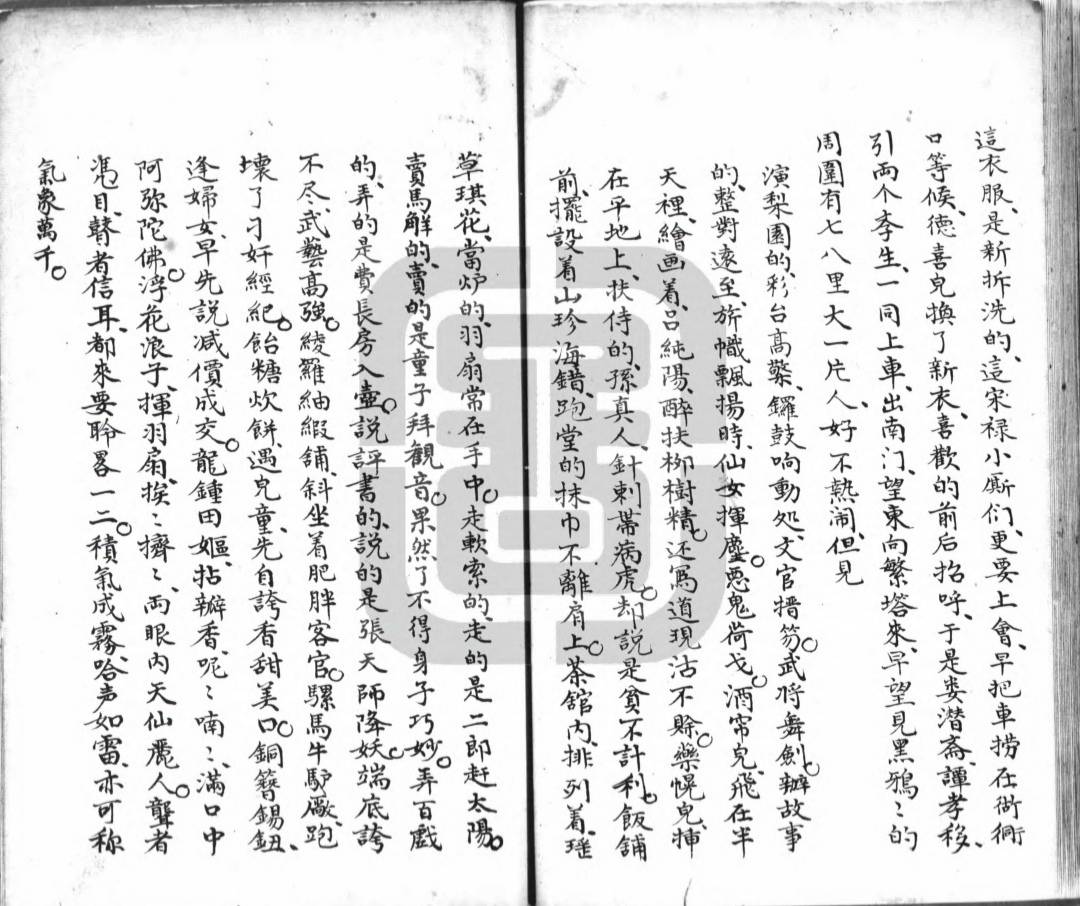 這衣服、是新拆洗的、這宋禄小厮们、更要上會、早把車捞在衚衕
口等候、德喜皃換了新衣、喜歡的前后招呼、于是娄潜斋、譚孝移、
引兩个李生、一同上車、出南门、望東向繁塔來、早望見黑鴉〻的
周圍有七八里大一片人、好不熱闹、但見
演梨園的、彩台高檠、鑼鼓响動処、文官搢笏。武将舞劍、辦故事
的、整對遠至、旂幟飄揚時、仙女揮麈。惡鬼荷戈。酒帘皃、飛在半
天裡、繪画着、吕純陽、醉扶栁樹精。还寫道現沽不賒。藥幌皃、揷
在平地上、扶侍的、孫真人、針刺带病虎。却説是貧不計利。飯舖
前、擺設着山珍海錯、跑堂的抹巾不離肩上。茶舘内、排列着、瑶
草琪花、當炉的、羽扇常在手中。走軟索的、走的是二郎赶太陽。
賣馬解的、賣的是童子拜觀音。果然了不得身子巧妙。弄百戲
的、弄的是費長房入壺。説評書的、説的是張天師降妖。端底誇
不尽武藝高強。綾羅紬緞舖、斜坐着肥胖客官。騾馬牛馿厰、跑
壊了刁奸經紀。飴糖炊餅、遇皃童、先自誇香甜美口。銅簪錫鈕、
逢婦女、早先説减價成交。龍鍾田嫗、拈瓣香、呢〻喃〻、滿口中
阿弥陀佛。浮花浪子、揮羽扇、挨〻擠〻、兩眼内天仙麗人。聾者
馮目、瞽者信耳、都來要聆畧一二。積氣成霧、哈声如雷、亦可称
氣象萬千。